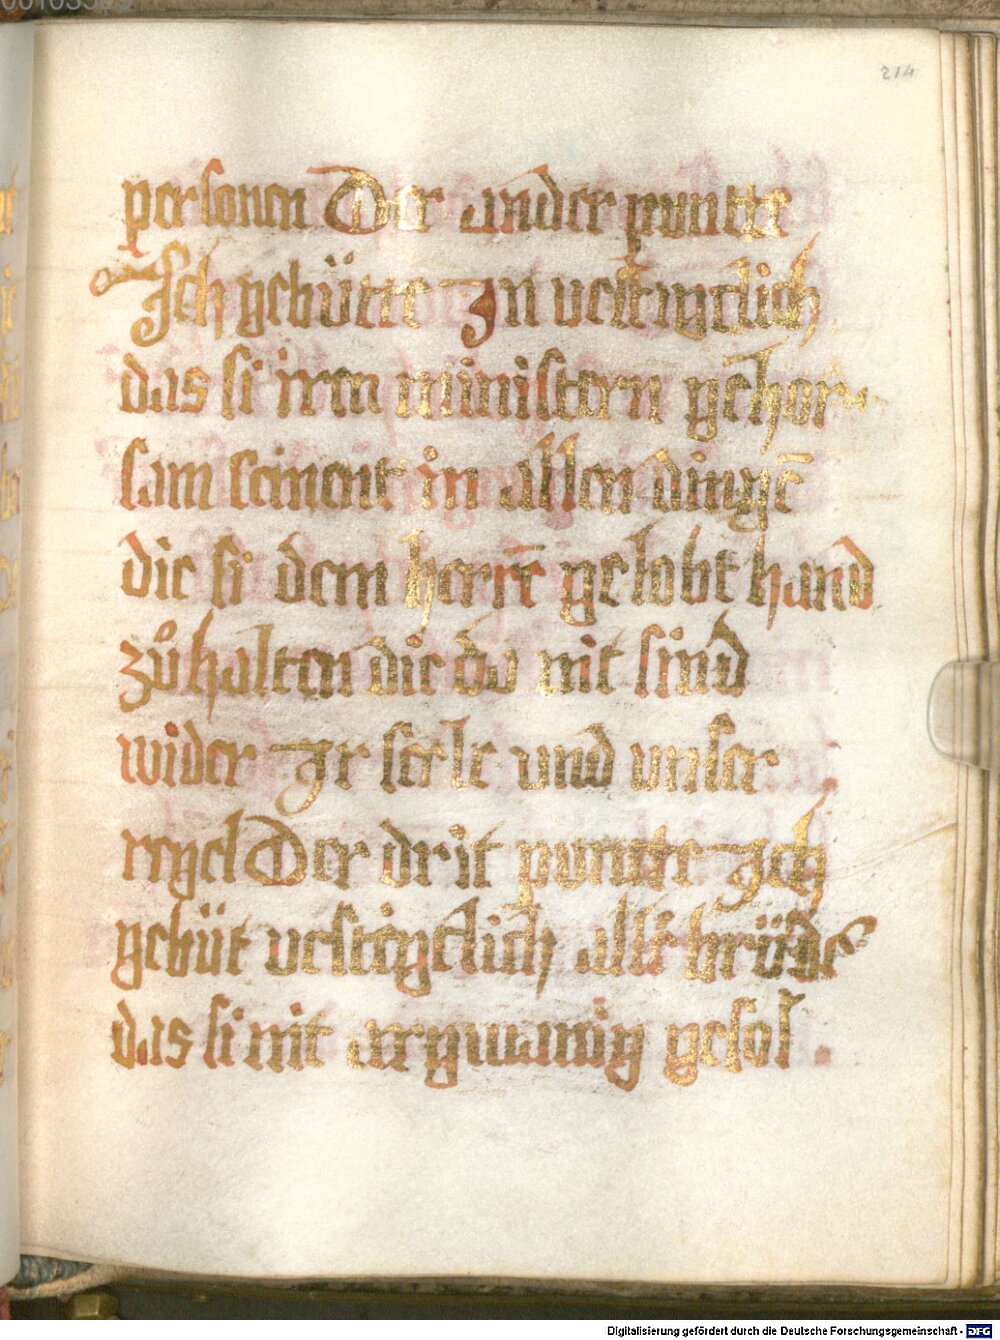 214
personen Der ander puntte
Ich gebütte In vestigtlich
das si iren ministern gehor
sam seinent in allen dingē
die si dem herrē gelobt hand
zů halten die da nit sind
wider Ir serle und unser
regel Der drit puntte Ich
gebüt vestigtlich alle brüder
das si nit argwanig gesol
Digitalisierung gefördert durch die Deutsche Forschungsgemeinschaft - DFG